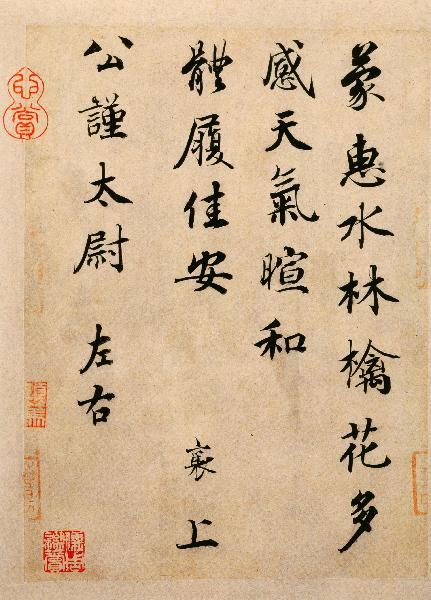 蒙惠水林檎花多
感天氣暄和
體履佳安
襄 上
公謹太尉 左右